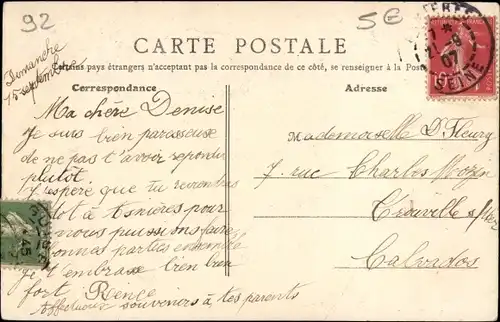 92
5€
CARTE POSTALE
Certains pays étrangers n'acceptant pas la correspondance de ce côté, se renseigner à la Poste
Correspondance
Adresse
Dimanche
15 septembre
Ma chère Denise
Je suis bien paresseuse
de ne pas t'avoir repondu
plutôt.
J'espère que tu reviendras
à Asnières pour
nous puissions faire
bonnes parties ensemble
Je t'embrasse bien bien
fort Renée
Affectueux souvenirs à tes parents
Mademoiselle D. Fleury
7 rue Charles Mozin
Trouville s/Mer
Calvados
07
SEINE